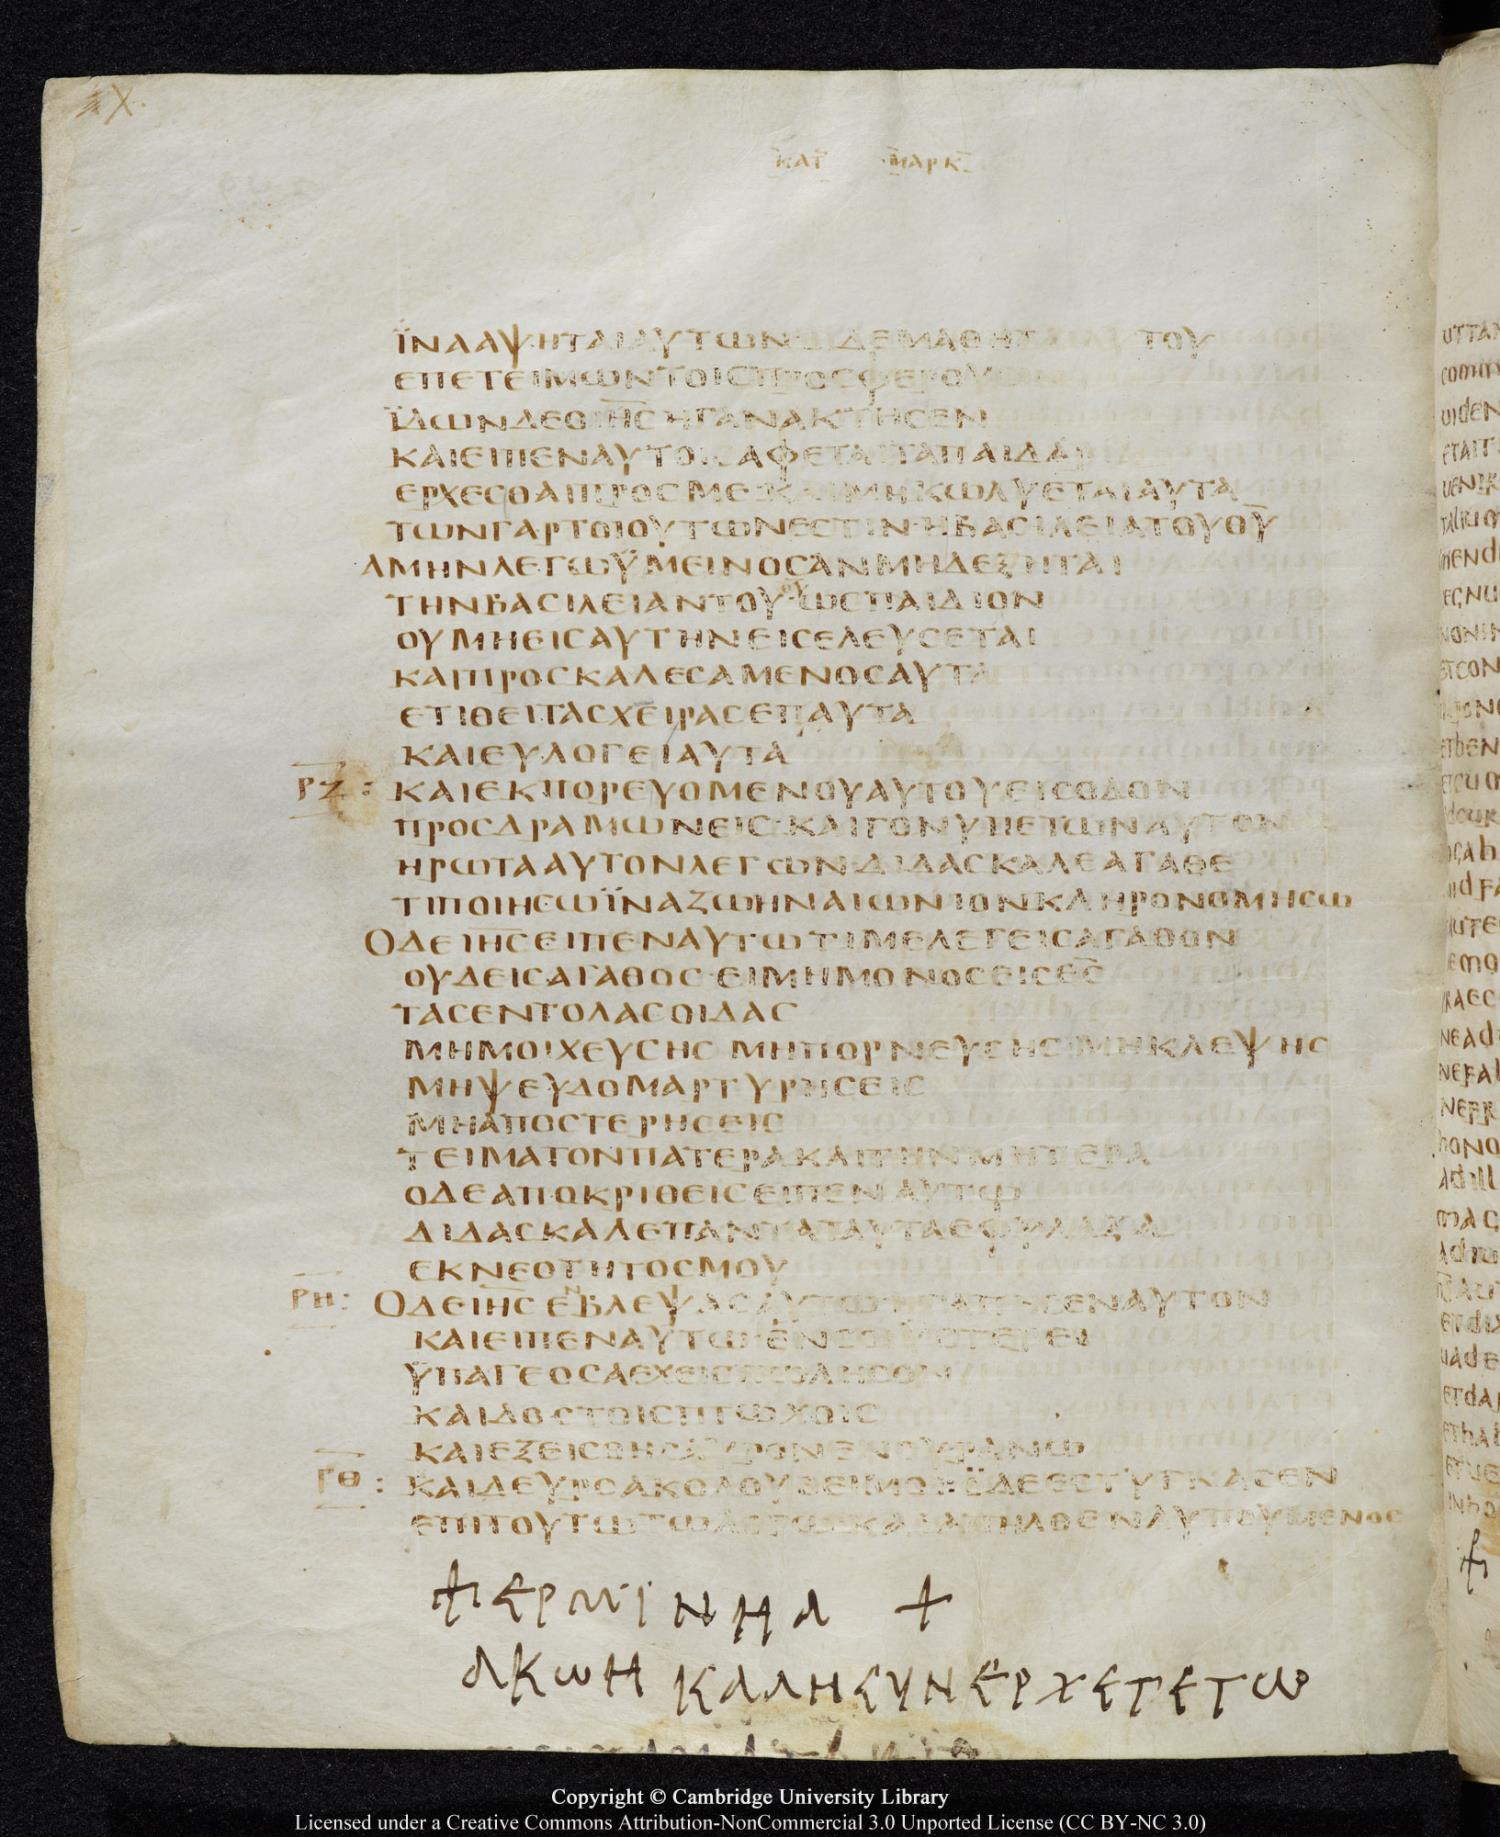 ΚΑΤ ΜΑΡΚ
ΪΝΑ ΑΨΗΤΑΙ ΑΥΤΩΝ ΟΙ ΔΕ ΜΑΘΗΤ ΤΟΥ
ΕΠΕΤΕΙΜΩΝ ΤΟΙΣ ΠΡΟΣΦΕΡΟΥ
ΪΔΩΝ ΔΕ Ο ΙΗΣ ΗΓΑΝΑΚΤΗΣΕΝ
ΚΑΙ ΕΙΠΕΝ ΑΥΤΟΙΣ ΑΦΕΤΑΙ ΤΑ ΠΑΙΔΑΡΙ
ΕΡΧΕΣΘΑΙ ΠΡΟΣ ΜΕ ΚΑΙ ΜΗ ΚΩΛΥΕΤΑΙ ΑΥΤΑ
ΤΩΝ ΓΑΡ ΤΟΙΟΥΤΩΝ ΕΣΤΙΝ Η ΒΑΣΙΛΕΙΑ ΤΟΥ ΘΥ
ΑΜΗΝ ΛΕΓΩ ΫΜΕΙΝ ΟΣ ΑΝ ΜΗ ΔΕΞΗΤΑΙ
ΤΗΝ ΒΑΣΙΛΕΙΑΝ ΤΟΥ ΘΥ ΩΣ ΠΑΙΔΙΟΝ
ΟΥ ΜΗ ΕΙΣ ΑΥΤΗΝ ΕΙΣΕΛΕΥΣΕΤΑΙ
ΚΑΙ ΠΡΟΣΚΑΛΕΣΑΜΕΝΟΣ ΑΥΤΑ
ΕΤΙΘΕΙ ΤΑΣ ΧΕΙΡΑΣ ΕΠ ΑΥΤΑ
ΚΑΙ ΕΥΛΟΓΕΙ ΑΥΤΑ
ΡΖ : ΚΑΙ ΕΚΠΟΡΕΥΟΜΕΝΟΥ ΑΥΤΟΥ ΕΙΣ ΟΔΟΝ
ΠΡΟΣΔΡΑΜΩΝ ΕΙΣ · ΚΑΙ ΓΟΝΥΠΕΤΩΝ ΑΥΤΟΝ
ΗΡΩΤΑ ΑΥΤΟΝ ΛΕΓΩΝ · ΔΙΔΑΣΚΑΛΕ ΑΓΑΘΕ
ΤΙ ΠΟΙΗΣΩ ΪΝΑ ΖΩΗΝ ΑΙΩΝΙΟΝ ΚΛΗΡΟΝΟΜΗΣΩ
Ο ΔΕ ΙΗΣ ΕΙΠΕΝ ΑΥΤΩ ΤΙ ΜΕ ΛΕΓΕΙΣ ΑΓΑΘΟΝ
ΟΥΔΕΙΣ ΑΓΑΘΟΣ · ΕΙ ΜΗ ΜΟΝΟΣ ΕΙΣ ΘΣ
ΤΑΣ ΕΝΤΟΛΑΣ ΟΙΔΑΣ
ΜΗ ΜΟΙΧΕΥΣΗΣ ΜΗ ΠΟΡΝΕΥΣΗΣ ΜΗ ΚΛΕΨΗΣ
ΜΗ ΨΕΥΔΟΜΑΡΤΥΡΗΣΕΙΣ
ΜΗ ΑΠΟΣΤΕΡΗΣΕΙΣ
ΤΕΙΜΑ ΤΟΝ ΠΑΤΕΡΑ ΚΑΙ ΤΗΝ ΜΗΤΕΡΑ
Ο ΔΕ ΑΠΟΚΡΙΘΕΙΣ ΕΙΠΕΝ ΑΥΤΩ
ΔΙΔΑΣΚΑΛΕ ΠΑΝΤΑ ΤΑΥΤΑ ΕΦΥΛΑΞΑ
ΕΚ ΝΕΟΤΗΤΟΣ ΜΟΥ
ΡΗ : Ο ΔΕ ΙΗΣ ΕΝΒΛΕΨΑΣ ΑΥΤΩ ΗΓΑΠΗΣΕΝ ΑΥΤΟΝ
ΚΑΙ ΕΙΠΕΝ ΑΥΤΩ · ΕΝ ΣΟΙ ΫΣΤΕΡΕΙ
ΫΠΑΓΕ ΟΣΑ ΕΧΕΙΣ ΠΩΛΗΣΟΝ
ΚΑΙ ΔΟΣ ΤΟΙΣ ΠΤΩΧΟΙΣ
ΚΑΙ ΕΞΕΙΣ ΘΗΣΑΥΡΟΝ ΕΝ ΟΥΡΑΝΩ
ΡΘ : ΚΑΙ ΔΕΥΡΟ ΑΚΟΛΟΥΘΕΙ ΜΟΙ · Ο ΔΕ ΕΣΤΥΓΝΑΣΕΝ
ΕΠΙ ΤΟΥΤΩ ΤΩ ΛΟΓΩ ΚΑΙ ΑΠΗΛΘΕΝ ΛΥΠΟΥΜΕΝΟΣ
ΕΡΜΙΝΗΑ +
ΑΚΩΗ ΚΑΛΗ ΣΥΝΕΡΧΕΤΕ ΤΩ
Copyright © Cambridge University Library
Licensed under a Creative Commons Attribution-NonCommercial 3.0 Unported License (CC BY-NC 3.0)